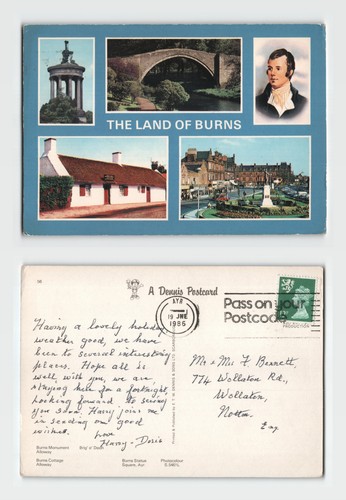 THE LAND OF BURNS
A Dennis Postcard
AYR
19 JNE
1986
Pass on your
Postcode
Having a lovely holiday
weather good, we have
been to several interesting
places. Hope all is
well with you, we are
staying here for a fortnight,
looking forward to seeing
you soon. Harry joins me
in sending our good
wishes.
Love
Harry - Doris
Mr & Mrs F Bennett,
774 Wollaton Rd.,
Wollaton,
Notts
Burns Monument
Alloway
Brig' o' Doon
Burns Cottage
Alloway
Burns Statue
Square, Ayr.
Photocolour